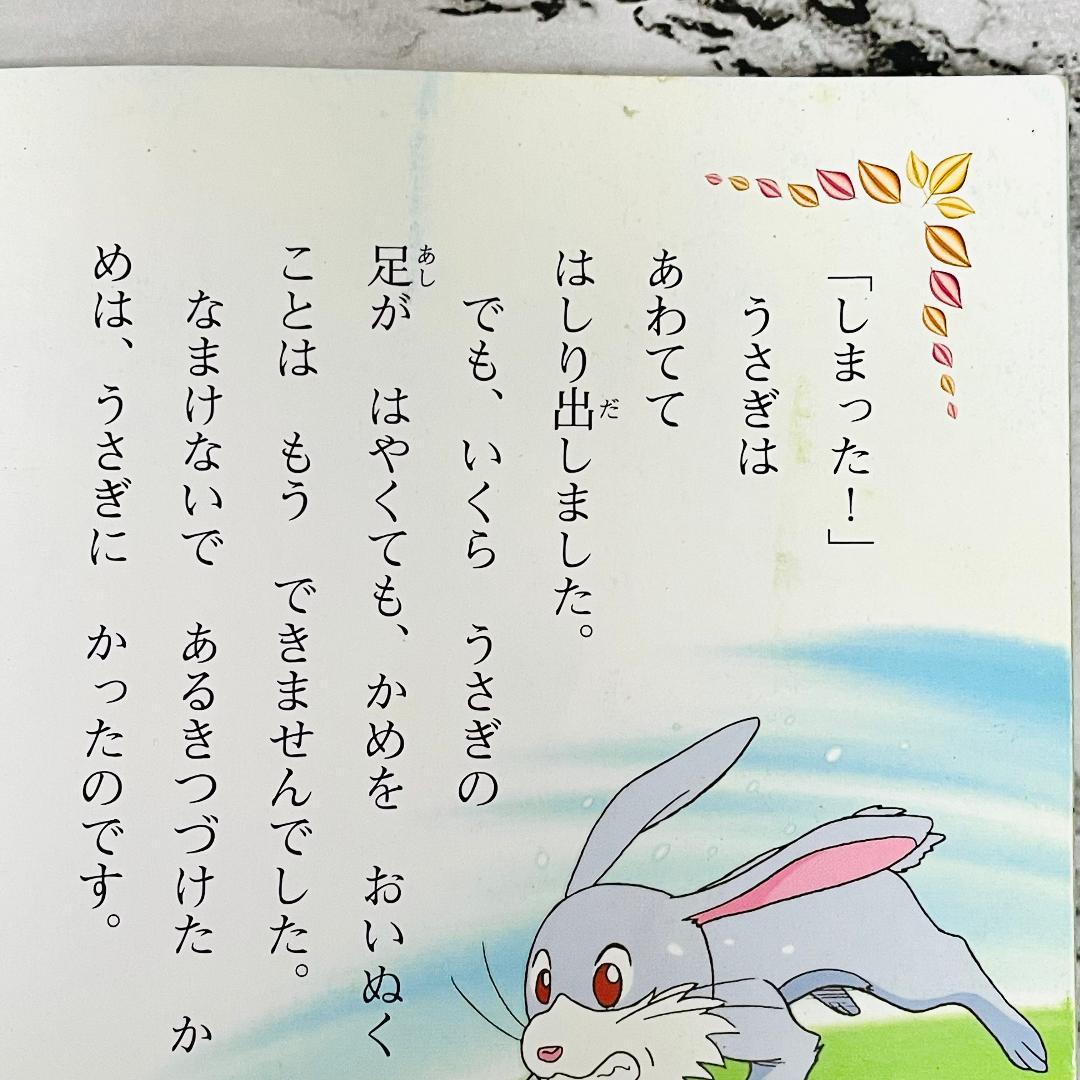 「しまった！」
うさぎは
あわてて
はしり出しました。
だ
でも、いくら うさぎの
足が はやくても、かめを おいぬく
あし
ことは もう できませんでした。
なまけないで あるきつづけた か
めは、うさぎに かったのです。